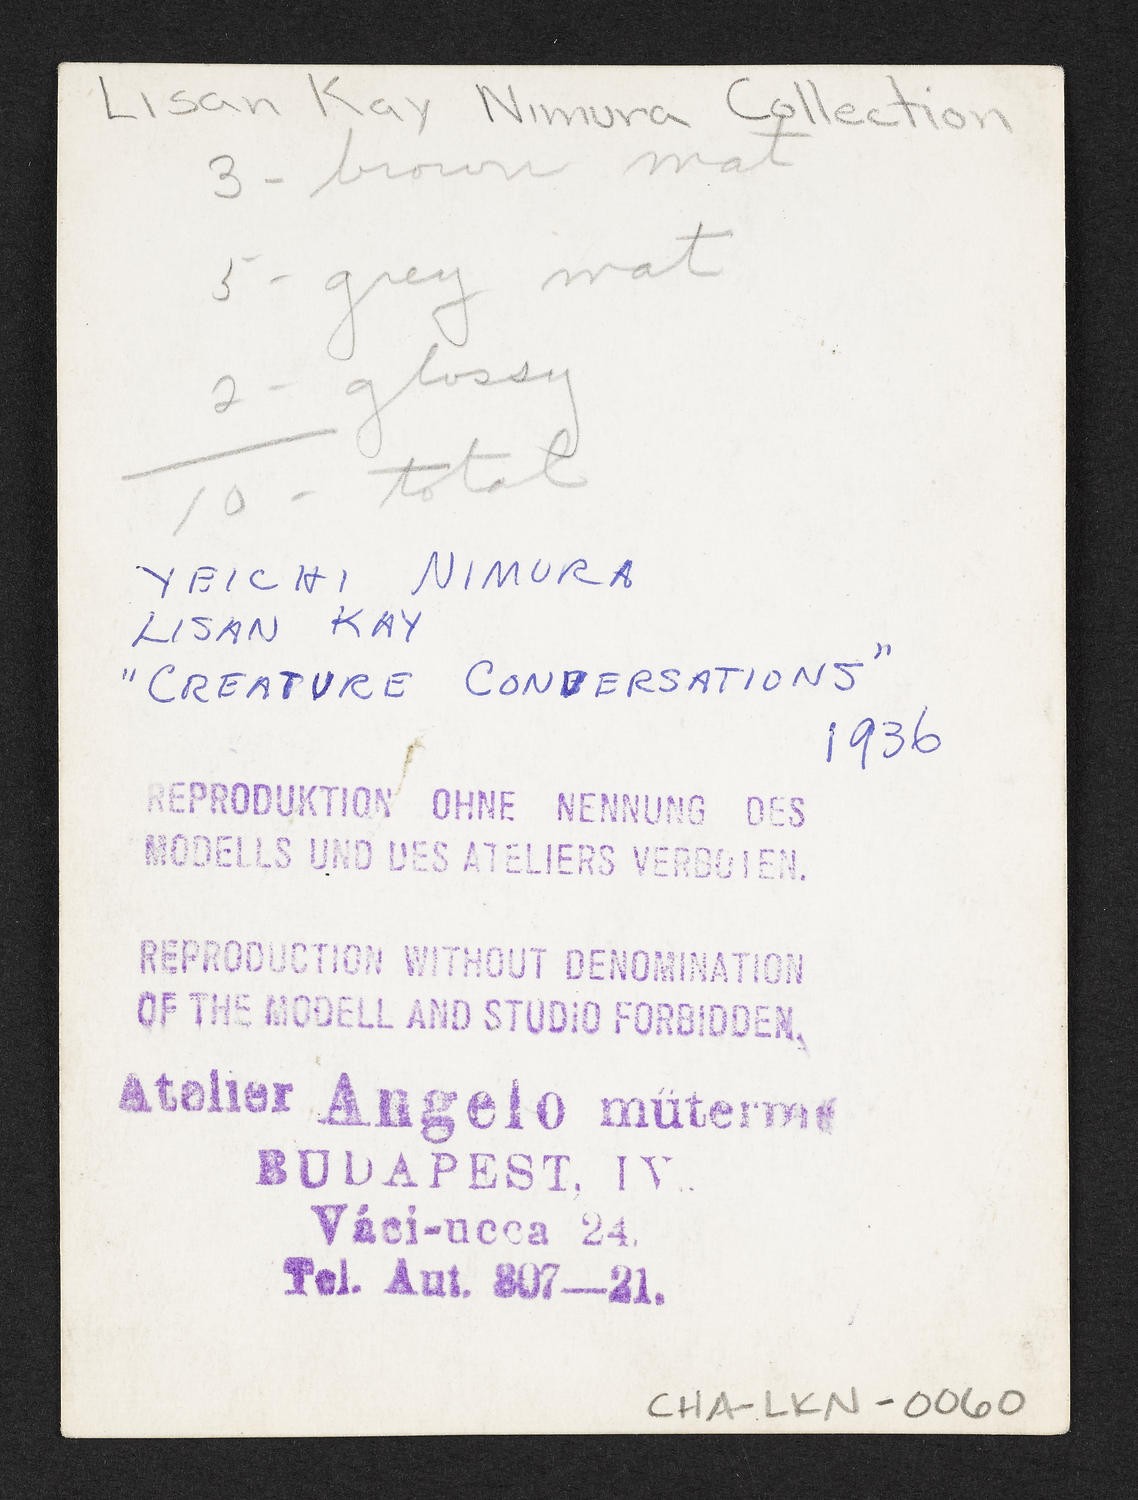 Lisan Kay Nimura Collection
3 - brown mat
5 - grey mat
2 - glossy
10 - total
YEICHI NIMURA
LISAN KAY
"CREATURE CONVERSATIONS"
1936
REPRODUKTION OHNE NENNUNG DES
MODELLS UND DES ATELIERS VERBOTEN.
REPRODUCTION WITHOUT DENOMINATION
OF THE MODELL AND STUDIO FORBIDDEN.
Atelier Angelo müterme
BUDAPEST, IV.
Váci-ucca 24.
Tel. Aut. 807—21.
CHA-LKN-0060